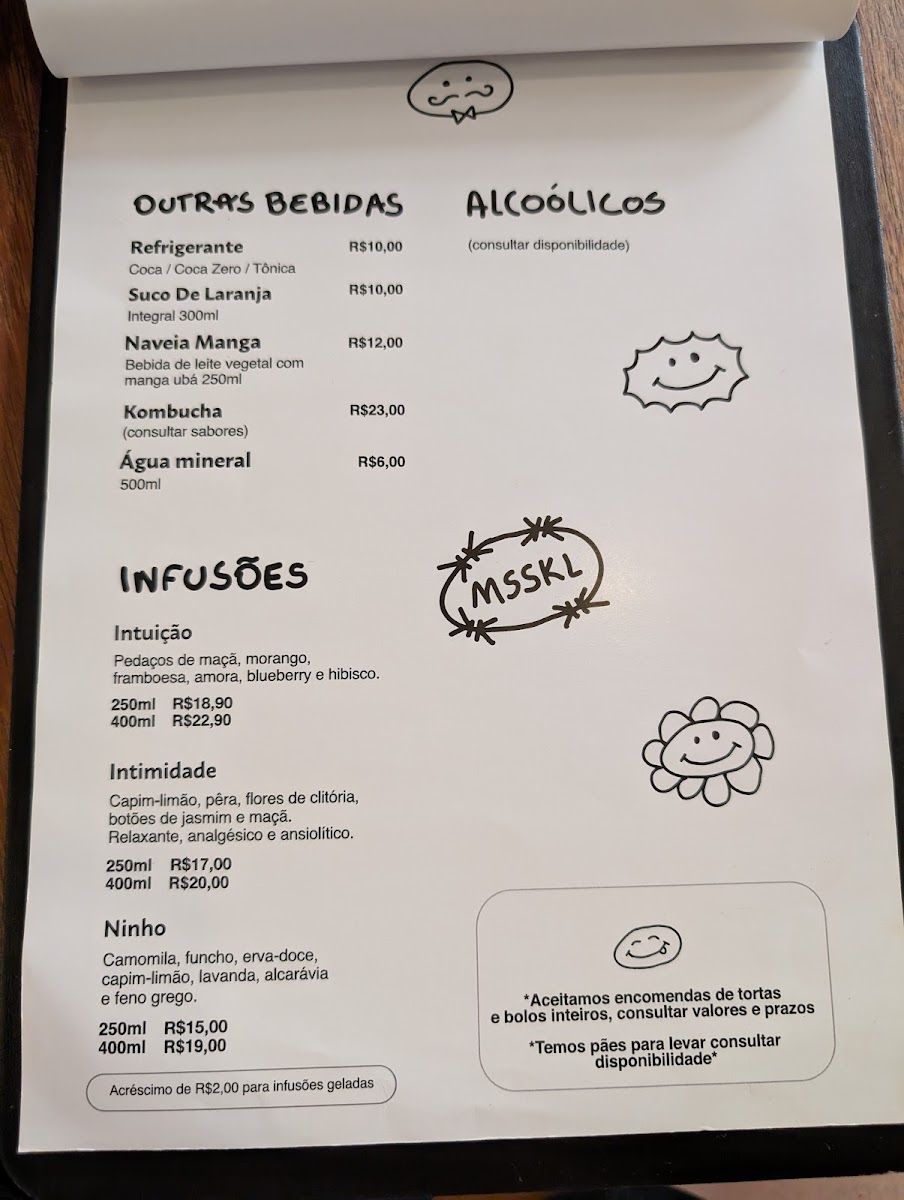 OUTRAS BEBIDAS
Refrigerante R$10,00
Coca / Coca Zero / Tônica
Suco De Laranja R$10,00
Integral 300ml
Naveia Manga R$12,00
Bebida de leite vegetal com
manga ubá 250ml
Kombucha R$23,00
(consultar sabores)
Água mineral R$6,00
500ml
ALCOÓLICOS
(consultar disponibilidade)
MSSKL
INFUSÕES
Intuição
Pedaços de maçã, morango,
framboesa, amora, blueberry e hibisco.
250ml R$18,90
400ml R$22,90
Intimidade
Capim-limão, pêra, flores de clitória,
botões de jasmim e maçã.
Relaxante, analgésico e ansiolítico.
250ml R$17,00
400ml R$20,00
Ninho
Camomila, funcho, erva-doce,
capim-limão, lavanda, alcarávia
e feno grego.
250ml R$15,00
400ml R$19,00
Acréscimo de R$2,00 para infusões geladas
*Aceitamos encomendas de tortas
e bolos inteiros, consultar valores e prazos
*Temos pães para levar consultar
disponibilidade*